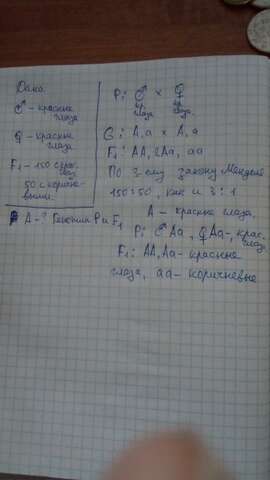 Дано
♂ - красные
глаза
♀ - красные
глаза
F₁ - 150 с крас.
глаз.
50 с коричне-
выми.
А - ? Генотип P и F₁
P: ♂ × ♀
кр. кр.
глаза глаза.
G: A, a × A, a
F₁: AA, 2Aa, aa
По 3-ему закону Менделя
150:50, как и 3:1
А - красные глаза,
P: ♂ Aa, ♀ Aa -, крас.
глаз.
F₁: AA, Aa - красные
глаза, aa - коричневые